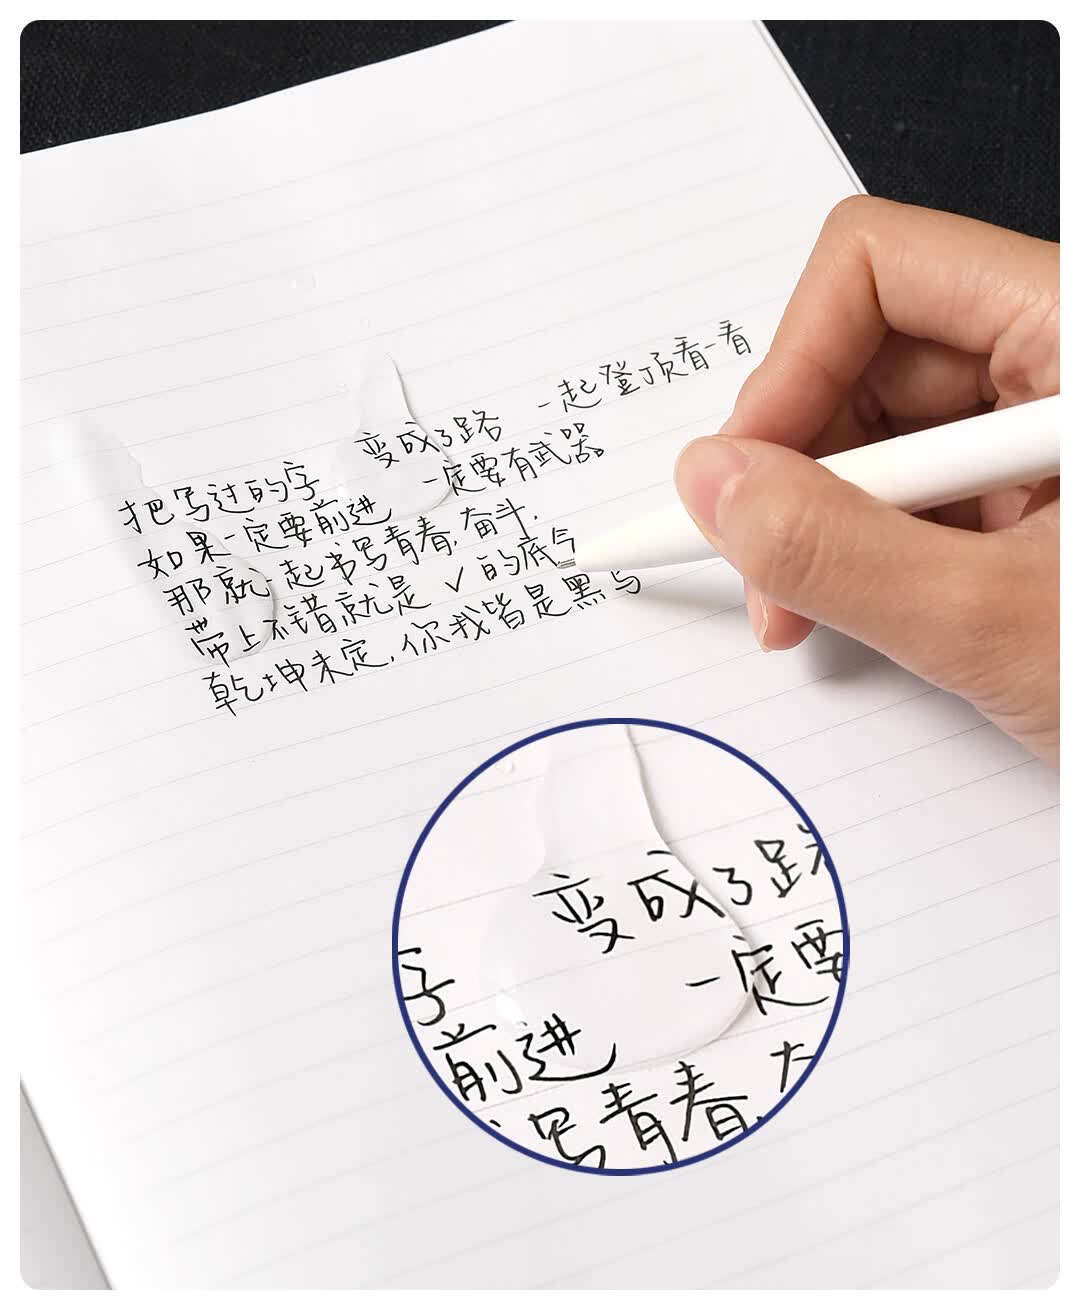 把写过的字 变成了路 一起登顶看一看
如果一定要前进 一定要有武器。
那就一起书写青春,奋斗,
带上不错就是 ✓ 的底气
乾坤未定,你我皆是黑马
变成了路
字 一定要
前进
写青春,